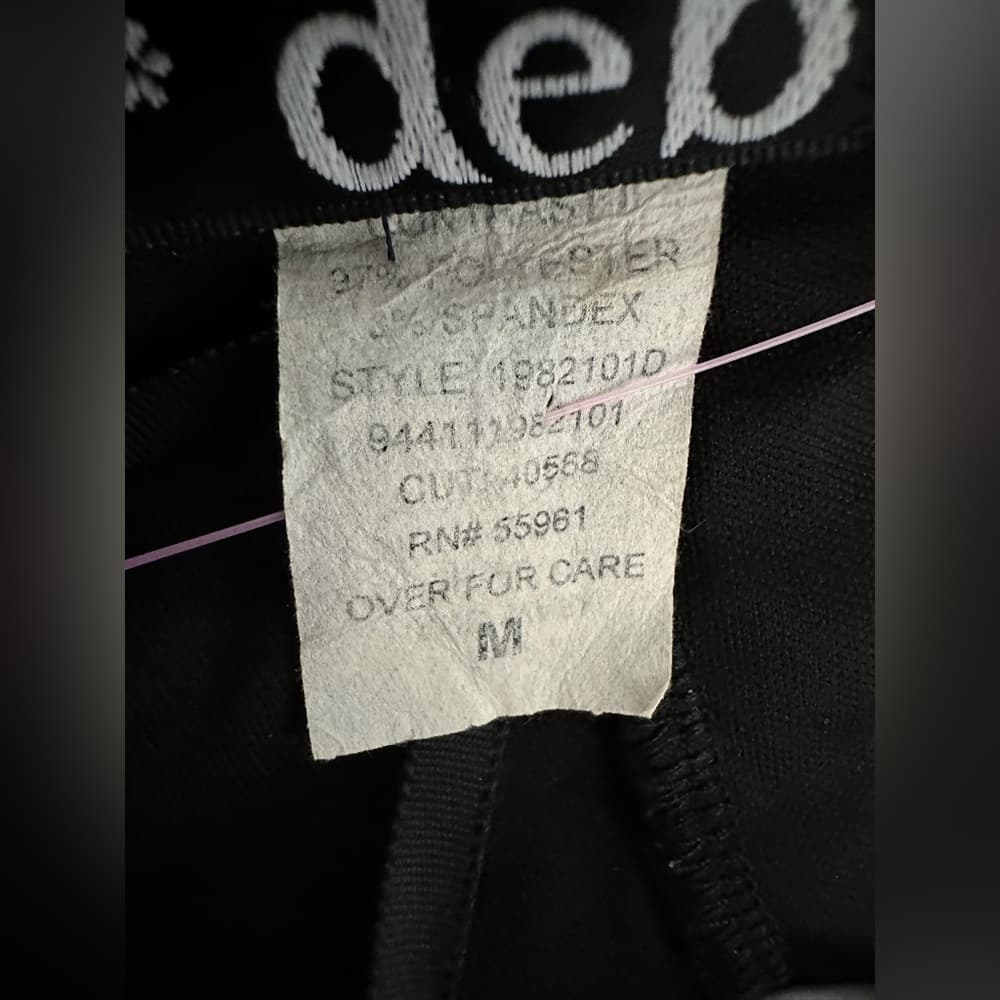 * deb
97% POLYESTER
3% SPANDEX
STYLE: 1982101D
944111982101
CUT: 40568
RN# 55961
OVER FOR CARE
M